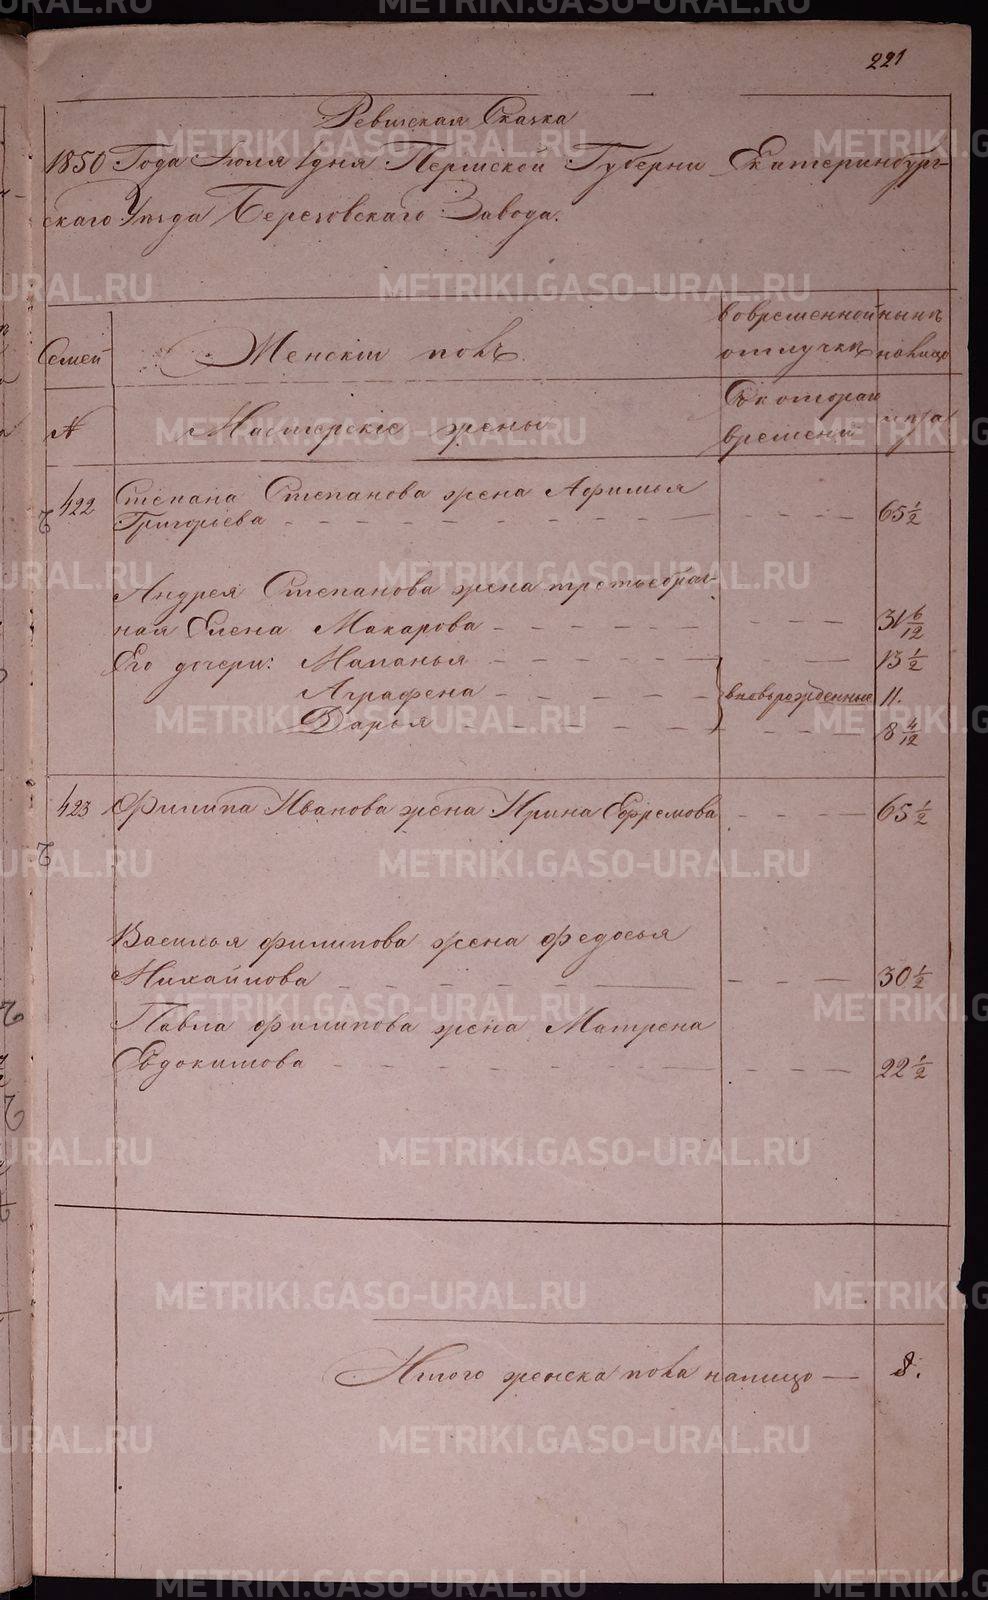 221
Ревизская Сказка
1850 Года Июля 1 дня Пермской Губерни Екатеринбург-
скаго Уезда Березовскаго Завода.
Семей Женский полъ. вовременной ныне
отлучке налицо
№ Мастерские жены Съ которай лета
времени
422 Степана Степанова жена Афимья
Григорiева 65 1/2
Андрея Степанова жена третьебрач-
ная Елена Макарова 31 6/12
Его дочери: Маланья 13 1/2
Аграфена вневьрожденные 11.
Дарья 8 4/12
423 Филипа Иванова жена Ирина Ефремова 65 1/2
Василья филипова жена федосья
Михайлова 30 1/2
Павла филипова жена Матрена
Евдокимова 22 1/2
Итого женска пола налицо 8.
METRIKI.GASO-URAL.RU